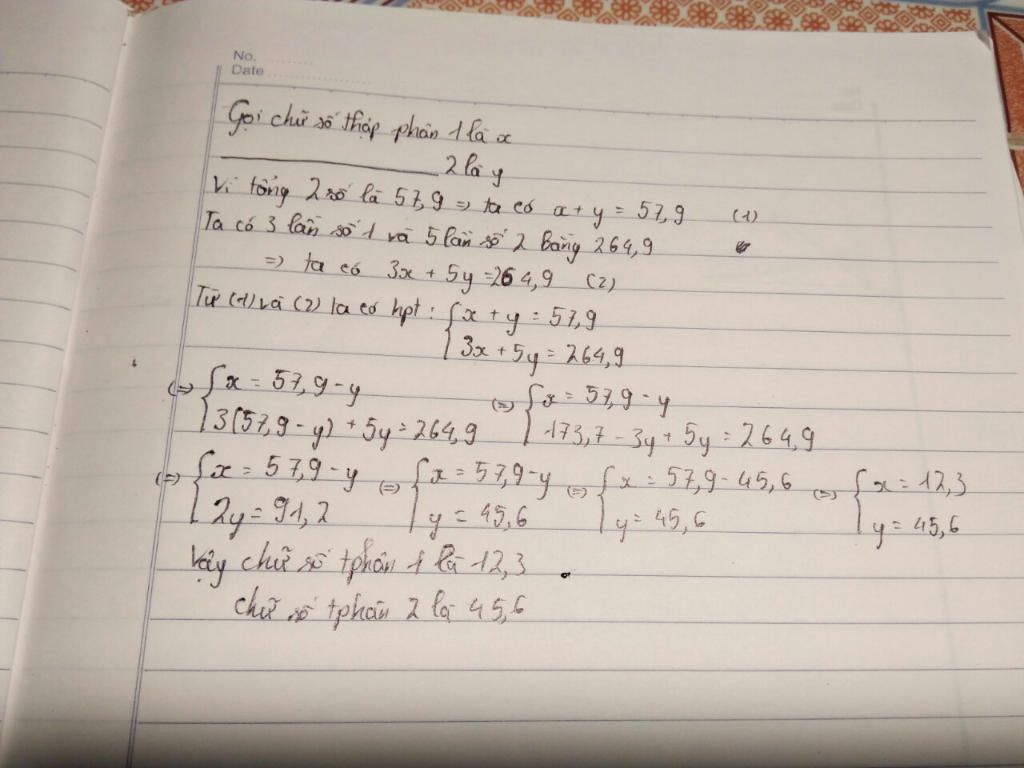 No. ........
Date ....................
Gọi chữ số thập phân 1 là x
__________ 2 là y
Vì tổng 2 số là 57,9 => ta có x + y = 57,9 (1)
Ta có 3 lần số 1 và 5 lần số 2 bằng 264,9
=> ta có 3x + 5y = 264,9 (2)
Từ (1) và (2) ta có hpt : { x + y = 57,9
3x + 5y = 264,9
(=) { x = 57,9 - y (=) { x = 57,9 - y
3(57,9 - y) + 5y = 264,9 173,7 - 3y + 5y = 264,9
(=) { x = 57,9 - y (=) { x = 57,9 - y (=) { x = 57,9 - 45,6 (=) { x = 12,3
2y = 91,2 y = 45,6 y = 45,6 y = 45,6
Vậy chữ số tphân 1 là 12,3
chữ số tphân 2 là 45,6